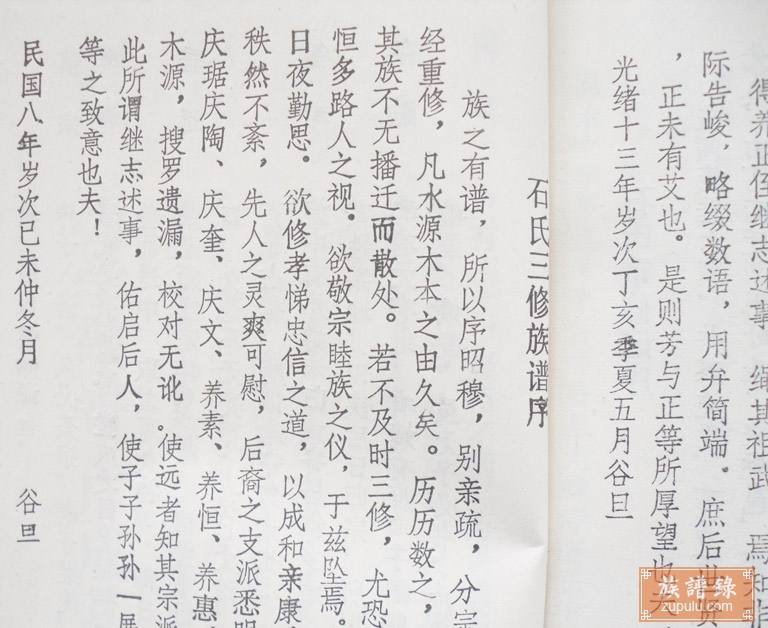 得养正侄继志述事 绳其祖武 焉知
际告峻，略缀数语，用弁简端。庶后世贤
，正未有艾也。是则芳与正等所厚望也夫
光绪十三年岁次丁亥季夏五月谷旦
石氏三修族谱序
族之有谱，所以序昭穆，别亲疏，分宗
经重修，凡水源木本之由久矣。历历数之，
其族不无播迁而散处。若不及时三修，尤恐
恒多路人之视。欲敬宗睦族之仪，于兹坠焉。
日夜勤思。欲修孝悌忠信之道，以成和亲康
秩然不紊，先人之灵爽可慰，后裔之支派悉明
庆琚庆陶、庆奎、庆文、养素、养恒、养惠
木源，搜罗遗漏，校对无讹。使远者知其宗派
此所谓继志述事，佑启后人，使子子孙孙一展
等之致意也夫！
民国八年岁次己未仲冬月 谷旦
族譜錄
zupulu.com